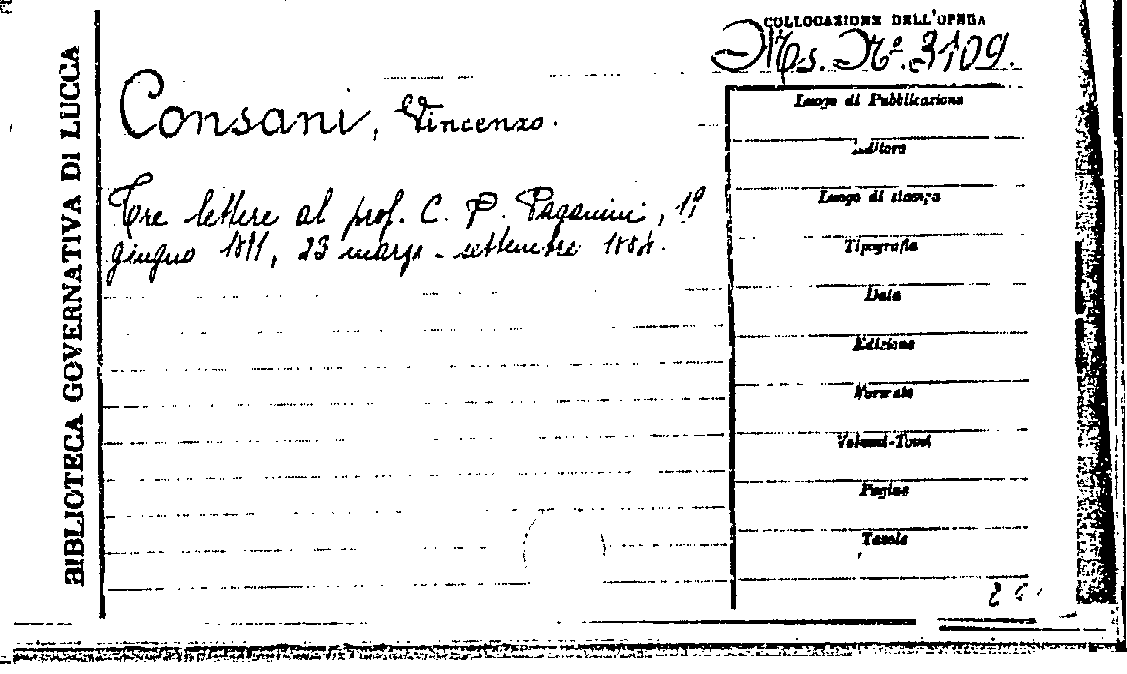 BIBLIOTECA GOVERNATIVA DI LUCCA
COLLOCAZIONE DELL'OPERA
Ms. Nº. 3109.
Consani, Vincenzo.
Tre lettere al prof. C. P. Paganini, 19
giugno, 23 marzo - settembre
Luogo di Pubblicazione
Editore
Luogo di stampa
Tipografia
Data
Edizione
Formato
Volumi-Tomi
Pagine
Tavole